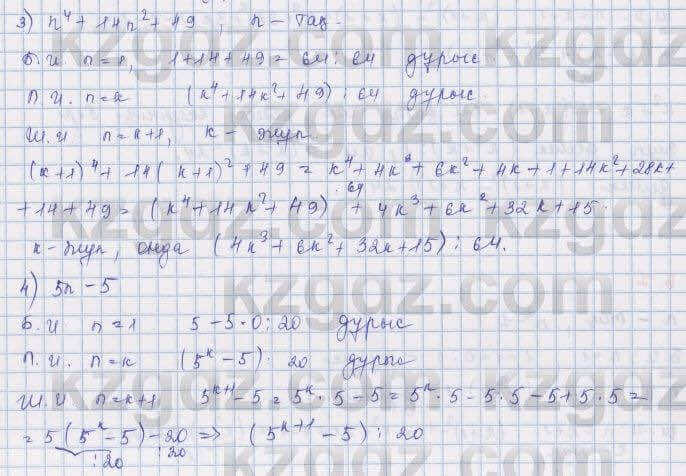 3) n⁴ + 14n² + 49, n – тақ.
Б.И. n=1, 1+14+49 = 64 ⋮ 64 дұрыс
П.И. n=k (k⁴+14k²+49) ⋮ 64 дұрыс
Ш.И n=k+1, k – жұп.
(k+1)⁴ + 14(k+1)² + 49 = k⁴ + 4k³ + 6k² + 4k + 1 + 14k² + 28k +
+ 14 + 49 = (k⁴ + 14k² + 49) ⋮ 64 + 4k³ + 6k² + 32k + 15.
k – жұп, онда (4k³ + 6k² + 32k + 15) ⋮ 64.
4) 5n – 5
Б.И n=1 5 – 5 = 0 ⋮ 20 дұрыс
П.И. n=k (5ᵏ – 5) ⋮ 20 дұрыс
Ш.И n=k+1 5ᵏ⁺¹ – 5 = 5ᵏ · 5 – 5 = 5ᵏ · 5 – 5·5 – 5 + 5·5 =
= 5(5ᵏ – 5) – 20 => (5ᵏ⁺¹ – 5) ⋮ 20
⋮ 20 ⋮ 20
kzgdz.com